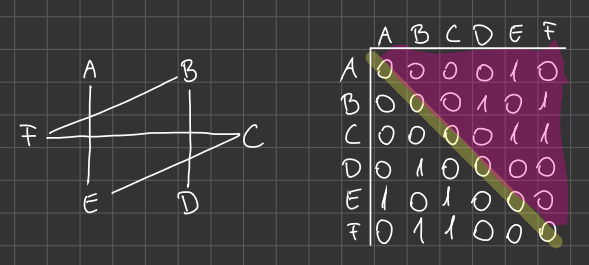 A B
F C
E D
A B C D E F
A 0 0 0 0 1 0
B 0 0 0 1 0 1
C 0 0 0 0 1 1
D 0 1 0 0 0 0
E 1 0 1 0 0 0
F 0 1 1 0 0 0